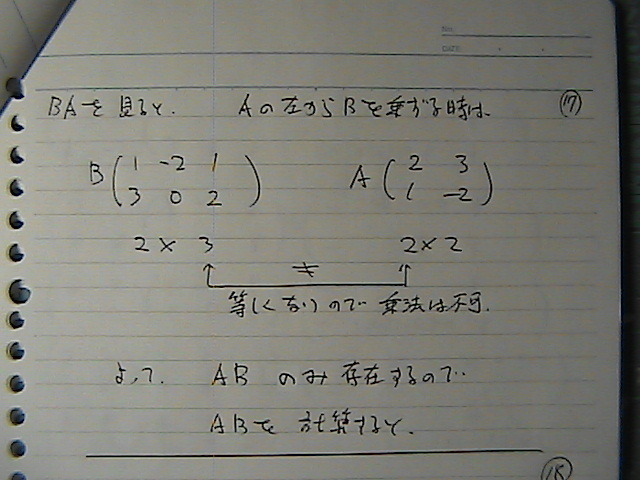 No.
DATE
BAを見ると、 Aの左からBを乗ずる時は、 ⑰
B ( 1 -2 1 ) A ( 2 3 )
( 3 0 2 ) ( 1 -2 )
2 × 3 2 × 2
≠
等しくないので乗法は不可.
よって、 AB のみ存在するので
ABを 計算すると、
⑱